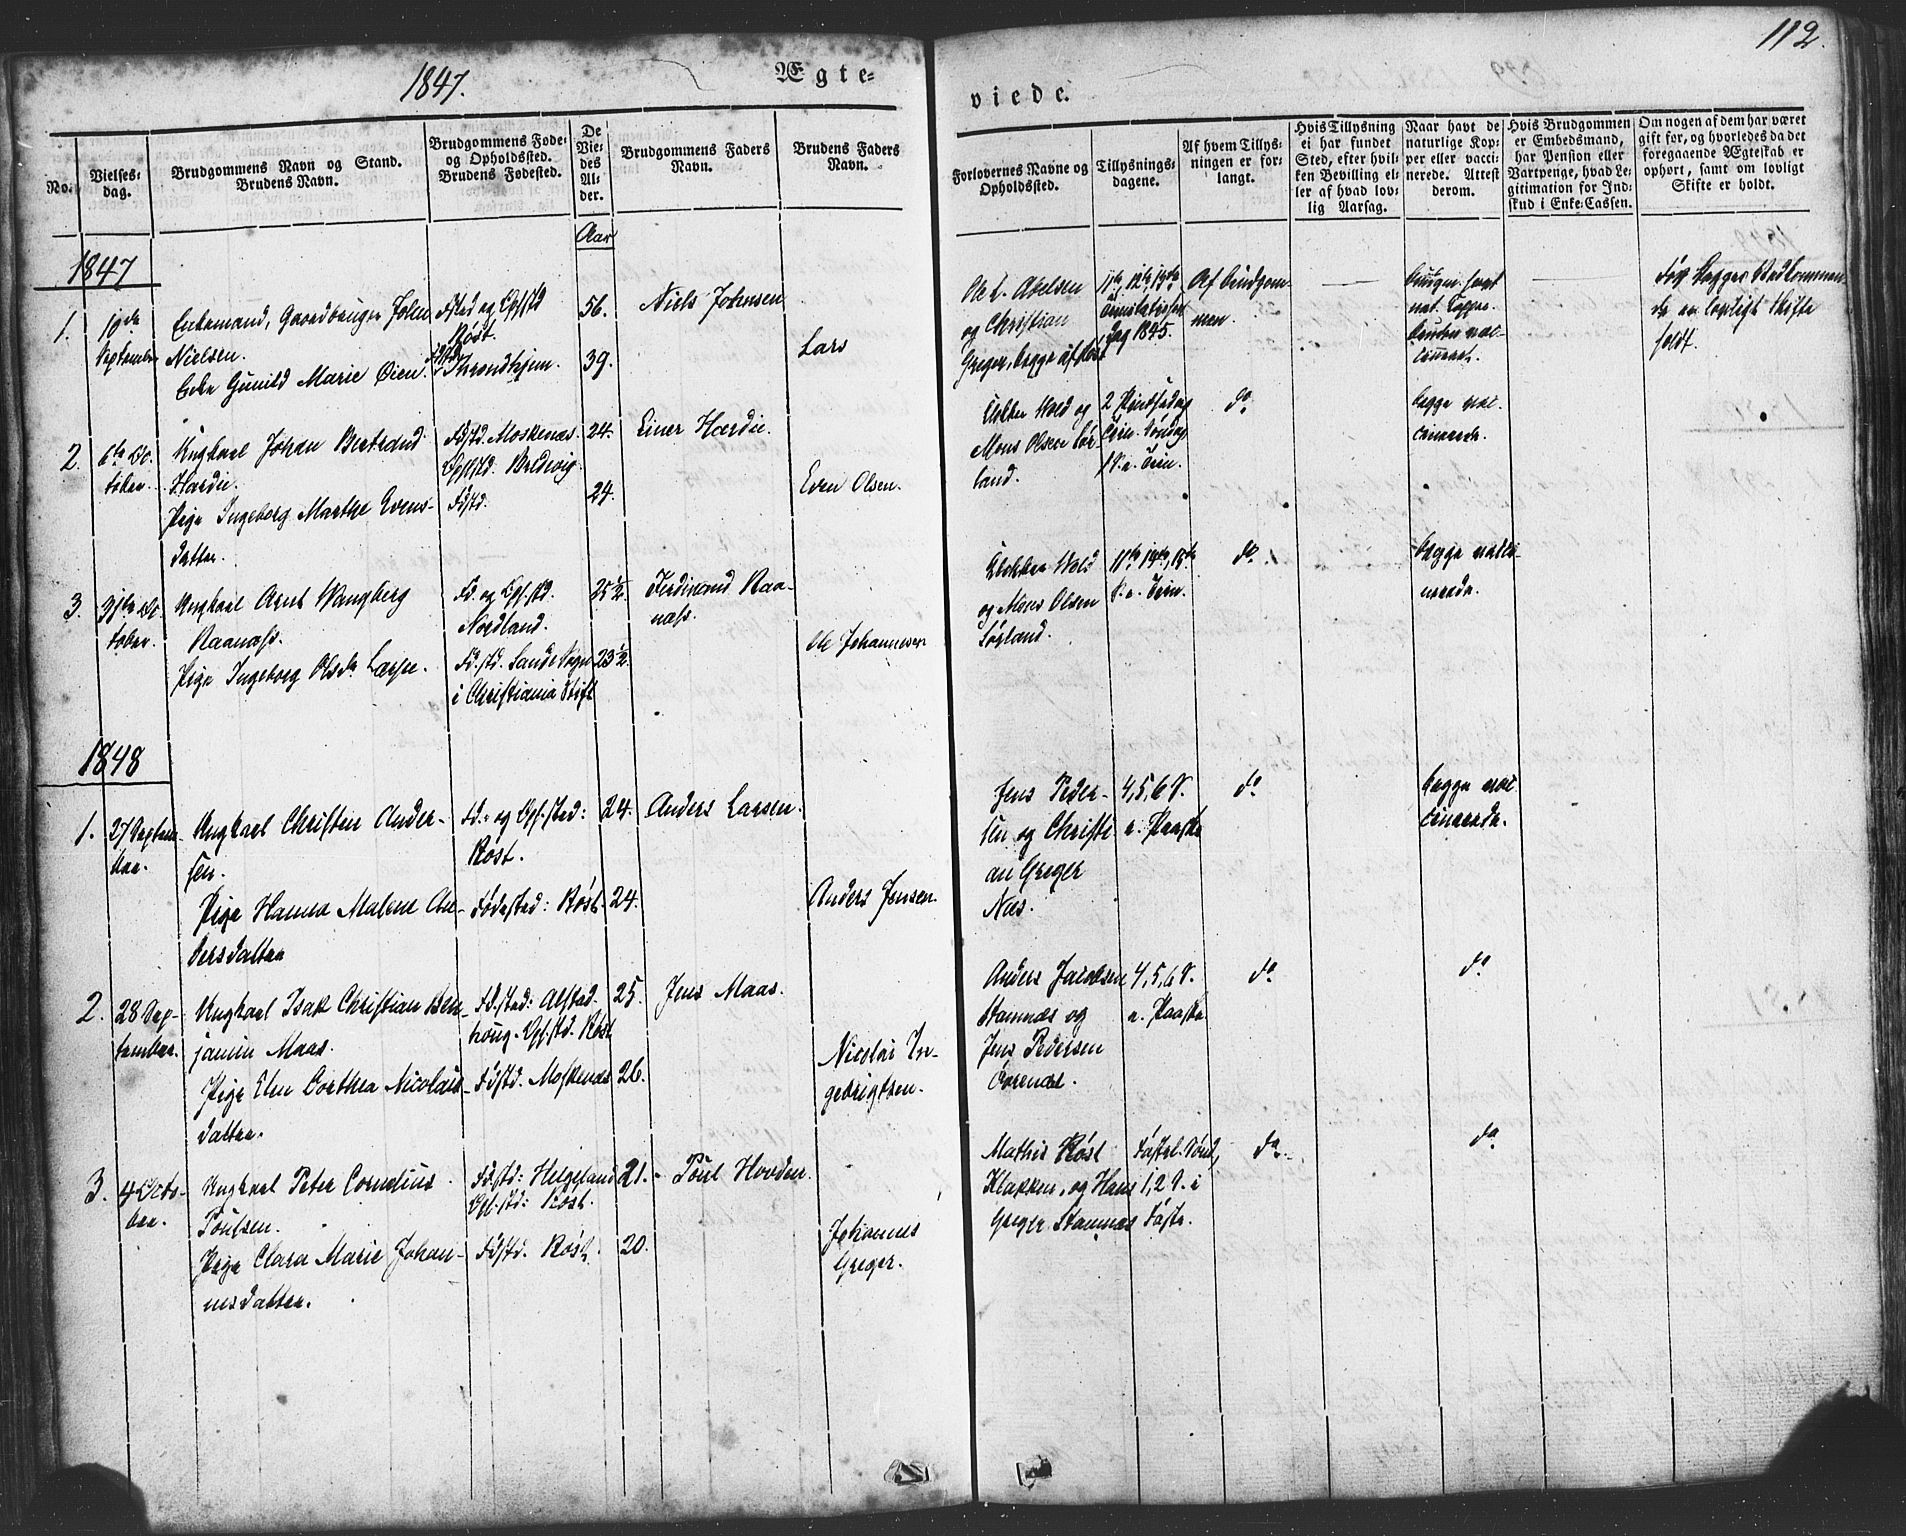 112.
1847.
Ægte=
viede.
No.
Vielses=
dag.
Brudgommens Navn og Stand.
Brudens Navn.
Brudgommens Føde=
og Opholdssted.
Brudens Fødested.
De
Vie=
des
Al=
der.
Brudgommens Faders
Navn.
Brudens Faders
Navn.
Forlovernes Navne og
Opholdssted.
Tillysnings=
dagene.
Af hvem Tillys=
ningen er for=
langt.
Hvis Tillysning
ei har fundet
Sted, efter hvil=
ken Bevilling el=
ler af hvad lov=
lig Aarsag.
Naar havt de
naturlige Kop=
per eller vacci=
nerede. Attest
derom.
Hvis Brudgommen
er Embedsmand,
har Pension eller
Vartpenge, hvad Le=
gitimation for Ind=
skud i Enke=Cassen.
Om nogen af dem har været
gift før, og hvorledes da det
foregaaende Ægteskab er
ophørt, samt om lovligt
Skifte er holdt.
Aar
1847
1.
19de
September
Enkemand, Gaardbruger John
Nielsen.
Enke Gunild Marie Øien.
Fsted og Opfstd
Røst.
Fdstd
Throndhjem.
56.
39.
Niels Johnsen
Lars
Ole L. Abelsen
og Christian
Greger, begge af Røst
11te, 12te, 13de
Trinitatis Søn
dag 1845.
Af Brudgom
men.
Brudgom. havt
nat. Kopper.
Bruden vac-
cineret.
For begges Vedkommen
de er lovligt Skifte
holdt.
2.
6te Oc.
tober.
Ungkarl Johan Bertrand
Hardie.
Pige Ingeborg Marthe Evens-
datter.
Fdstd. Moskenæs.
Opfstd. Bredevig
Fdstd.
24.
24.
Einer Hardie.
Even Olsen.
Klokker Wold og
Mons Olsen Sør
land.
2 Pindsedag
Trin. Søndag
1 S. e. Trin.
do
begge vac-
cinerede.
3.
Oc
tober.
Ungkarl Arnt Wangberg
Raanæss.
Pige Ingeborg Olsdr Larsen.
Fd. og Opf.std.
Nordland.
Fd.std. Sande Sogn
i Christiania Stift
25½
23½
Ferdinand Raa-
næss.
Ole Johannesen
Klokker Wold
og Mons Olsen
Sørland.
S. e. Trin.
do
begge vacci-
nerede.
1848
1.
27 Septem-
ber.
Ungkarl Christen Ander-
sen.
Pige Hanna Malene An-
dersdatter
Fd.- og Opf.sted:
Røst.
Fødested: Røst.
24.
24.
Anders Larsen.
Anders Jensen.
Jens Peder-
sen og Christi
an Greger
Næs.
4, 5, 6 S.
e. Paaske
do
begge vac
cinerede.
2.
28 Sep-
tember.
Ungkarl Isak Christian Ben-
jamin Maas.
Pige Elen Dorthea Nicolais-
datter.
Fd.sted: Alstad.
houg. Opf.std. Røst
Fdstd. Moskenæs
25.
26.
Jens Maas.
Nicolai In-
gebrigtsen.
Anders Jacobsen
Stamnæs og
Jens Pedersen
4, 5, 6 S.
e. Paaske
do
do
3.
4 Octo-
ber.
Ungkarl Peter Cornelius
Poulsen.
Pige Clara Marie Johan-
nesdatter.
Fdstd: Helgeland
Opf.std: Røst.
Fdstd. Røst.
21.
20.
Poul Hovden.
Johannes
Greger.
Mathis Røst
Klakken, og Hans
Greger Stamnæs
Fastel. Sønd,
1, 2 S. i
Faste.
do
do